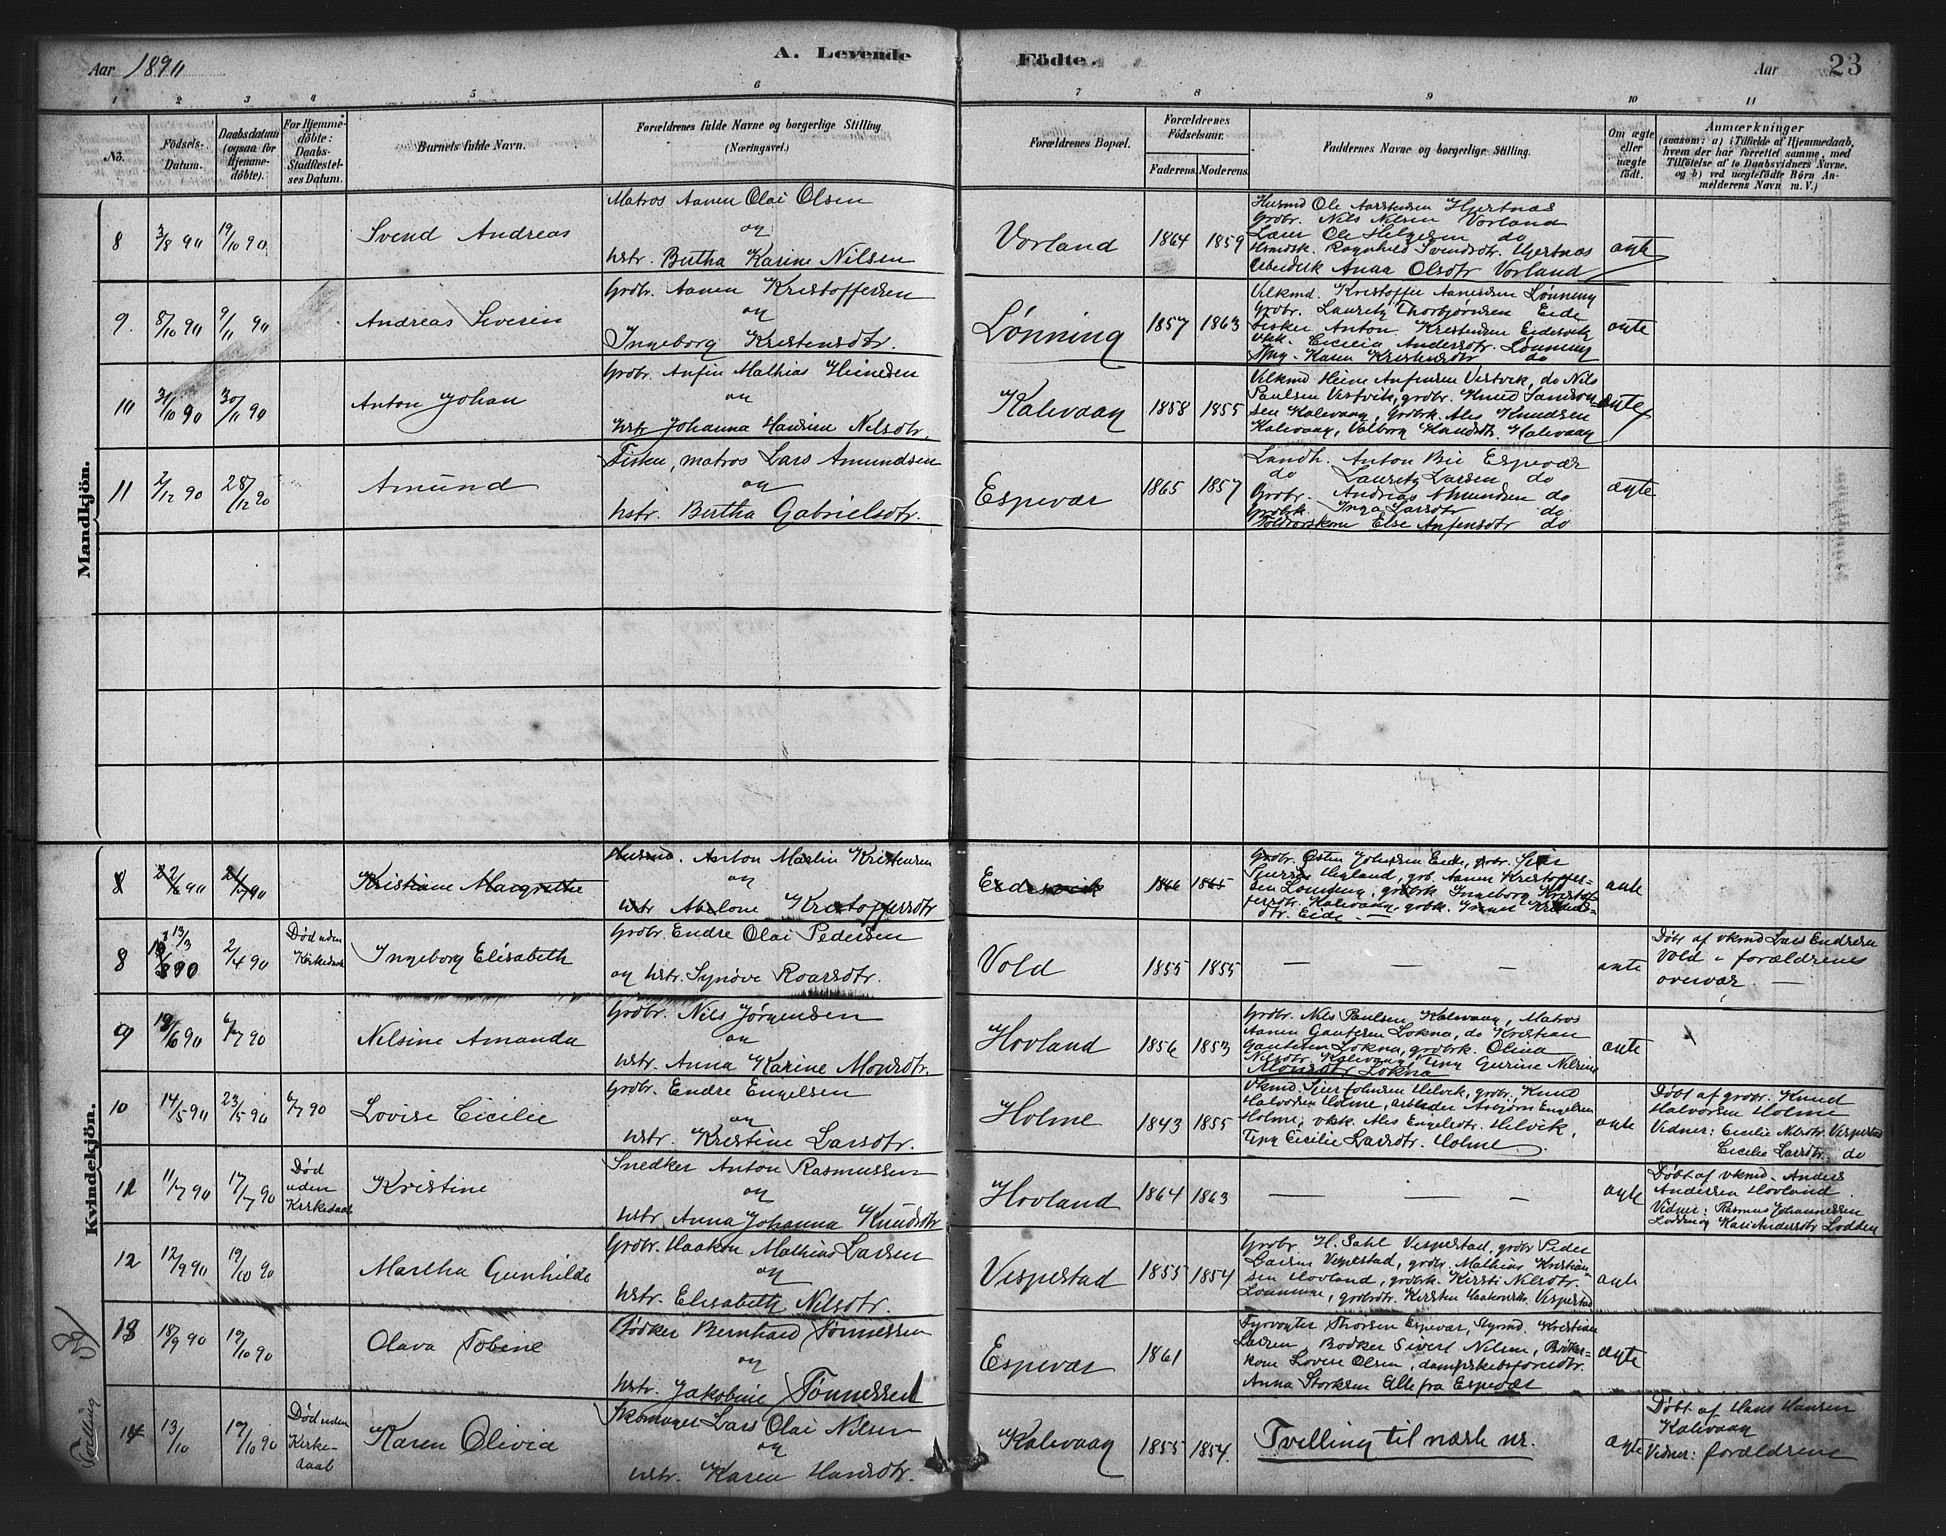 Aar 1890
A. Levende Födte.
Aar 23
1 2 3 4 5 6 7 8 9 10 11
No.
Födsels-Datum.
Daabsdatum (ogsaa for Hjemme-döbte).
For Hjemme-döbte: Daabs-Stadfæstel-ses Datum.
Barnets fulde Navn.
Forældrenes fulde Navne og borgerlige Stilling (Næringsvei.)
Forældrenes Bopæl.
Forældrenes Födselsaar.
Faderens. Moderens.
Faddernes Navne og borgerlige Stilling.
Om ægte eller uægte födt.
Anmærkninger
(saasom: a) i Tilfælde af Hjemmedaab, hvem der har forrettet samme, med Tilföielse af to Daabsvidners Navne, og b) ved uægtefödte Börn An-melderens Navn m. V.)
Mandkjön.
8 3/8 90 19/10 90 Svend Andreas
Matros Aanen Olai Olsen
og
hstr. Bertha Karine Nilsen
Vorland 1864 1859
Husmd Ole Aarstensen Hjertnæs
Grdbr. Nils Nilsen Vorland
Lærer Ole Helgesen do
Hmdsk. Ragnhild Svendsdtr. Hjertnæs
Arbeidersk Anna Olsdtr Vorland
ægte
9. 8/10 90 9/11 90 Andreas Severin
Grdbr. Aanen Kristoffersen
og
Ingeborg Kristensdtr.
Lønning 1857 1863
Velkmd. Kristoffer Aanensen Lønning
Grdbr. Lauritz Thorbjørnsen Eide
Fisker Anton Kristensen Eidesvik
Vkk. Cecilia Andersdtr. Lønning
Karen Kristensdtr do
ægte
10 31/10 90 30/11 90 Anton Johan
Grdbr. Anfin Mathias Heinesen
og
hstr Johanna Hansine Nilsdtr.
Kalevaag 1858 1855
Velkmd Heine Anfinsen Vestvik, do Nils
Paulsen Vestvik, grdbr. Knud Samson-
sen Kalevaag, Grdbrk. Ales Knudsen
Kalevaag, Valborg Knudsdtr. Kalevaag
ægte
11 2/12 90 28/12 90 Amund
Fisker, matros Lars Amundsen
og
hstr. Bertha Gabrielsdtr.
Espevær 1865 1857
Landh. Anton Bie Espevær
do Lauritz Larsen do
Grdbr. Andreas Amundsen do
Grdbrk. Inga Larsdtr do
Else Anfensdtr do
ægte
Kvindekjön.
8 22/6 90 21/7 90 Kristiane Margrethe
Husmd. Anton Martin Kristensen
og
hstr Abelone Kristoffersdtr
Eidesvik 1866 1865
Grdbr. Østen Johnsen Eide, grdbr.
Hovland, grb. Aanen Kristoffer-
sen Lønning, grdbrk Ingeborg Kristof-
fersdtr. Kalevaag, grdbk.
dtr. Eide. —
ægte
8 19/3 90 2/4 90 Død uden Kirkedaab Ingeborg Elisabeth
Grdbr. Endre Olai Pedersen
og hstr. Synøve Roarsdtr.
Vold 1855 1855 — — —
ægte
Døbt af vkmd Lars Endresen
Vold i forældrenes
overvær. —
9 19/6 90 6/7 90 Nilsine Amanda
Grdbr. Nils Jørgensen
og
hstr. Anna Karine Monsdtr.
Hovland 1856 1853
Grdbr. Nils Paulsen, Kalevaag, Matros
Aanen Gautesen Lokna, do Kristian
Gautesen Lokna, grdbrk. Olina
Nilsdtr. Kalevaag, Pig Gurine Nilsine
Monsdtr Lokna
ægte
10 14/5 90 23/5 90 6/7 90 Lovise Cicilie
Grdbr. Endre Engelsen
og
hstr. Kristine Larsdtr.
Holme 1843 1855
Vkmd. Sjur Johnsen Helvik, grdbr. Knud
Halvorsen Holme, arbeider Asbjørn Engelsen
Holme, vkk. Ales Engelsdtr. Helvik,
Pig Cicilie Larsdtr. Holme.
ægte
Døbt af grdbr. Knud
Halvorsen Holme
Vidner: Cecilie Nilsdtr. Vespestad
Cecilie Larsdtr. do
11 11/7 90 17/7 90 Død uden Kirkedaab Kristine
Snedker Anton Rasmussen
og
hstr. Anna Johanna Knudsdtr
Hovland 1864 1863 — — —
ægte
Døbt af vkmd. Anders
Andersen Hovland.
Vidner: Rasmus Johannessen
Lodden og Kari Andersdtr Lodden
12 12/9 90 19/10 90 Martha Gunhilde
Grdbr. Haakon Mathias Larsen
og
hstr. Elisabeth Nilsdtr.
Vespestad 1855 1854
Grdbr. H. Dahl Vespestad, grdbr Peder
Larsen Vespestad, grdbr. Mathias Kristian-
sen Hovland, grdbrk. Kirsti Nilsdtr.
Lønning, grdbrdtr. Kirsten Haakonsdtr. Vespestad
ægte
13 18/9 90 19/10 90 Olava Tobine
Bødker Bernhard Tønnessen
og
hstr. Jakobine Tønnessen
Espevær 1861
Fyrvogter Thorsen Espevær, Styrmd. Kristian
Larsen, Bødker Sivert Nilsen, Bødker-
kone Lovise Olsen,
Anna Storksen Alle fra Espevær
ægte
Tvilling
14 13/10 19/10 90 Død uden Kirke-daab Karen Olivia
Skomager Lars Olai Nilsen
og
hstr. Karen Hansdtr.
Kalevaag 1855 1854. Tvilling til næste nr.
ægte
Døbt af Hans Hansen
Kalevaag
Vidner: forældrene